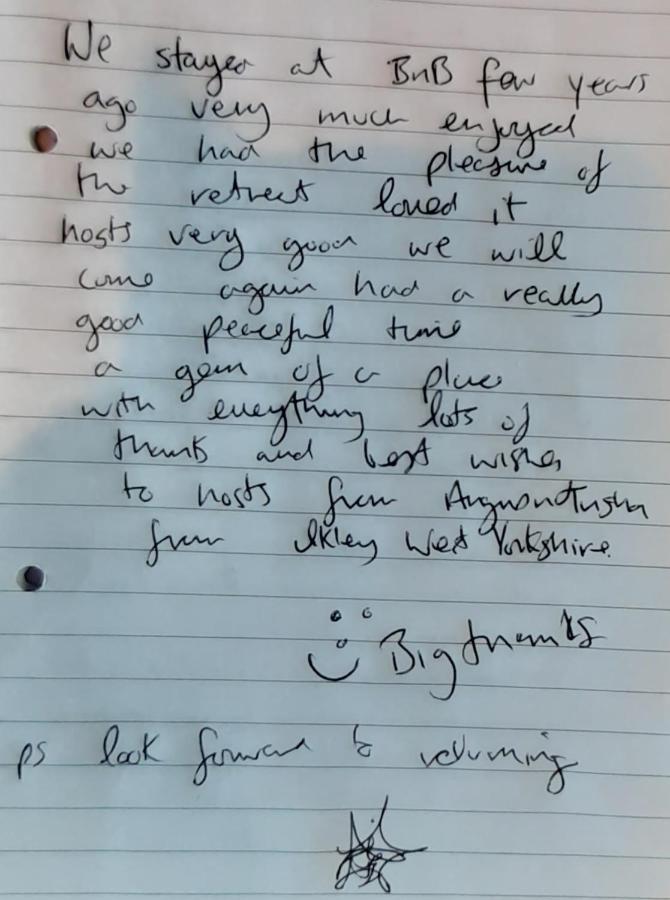 We stayed at BnB few years
ago very much enjoyed
we had the pleasure of
the retreat loved it
hosts very good we will
come again had a really
good peaceful time
a gem of a place
with everything lots of
thanks and best wishes
to hosts from
from Ilkley West Yorkshire.
Big thanks
ps look forward to returning